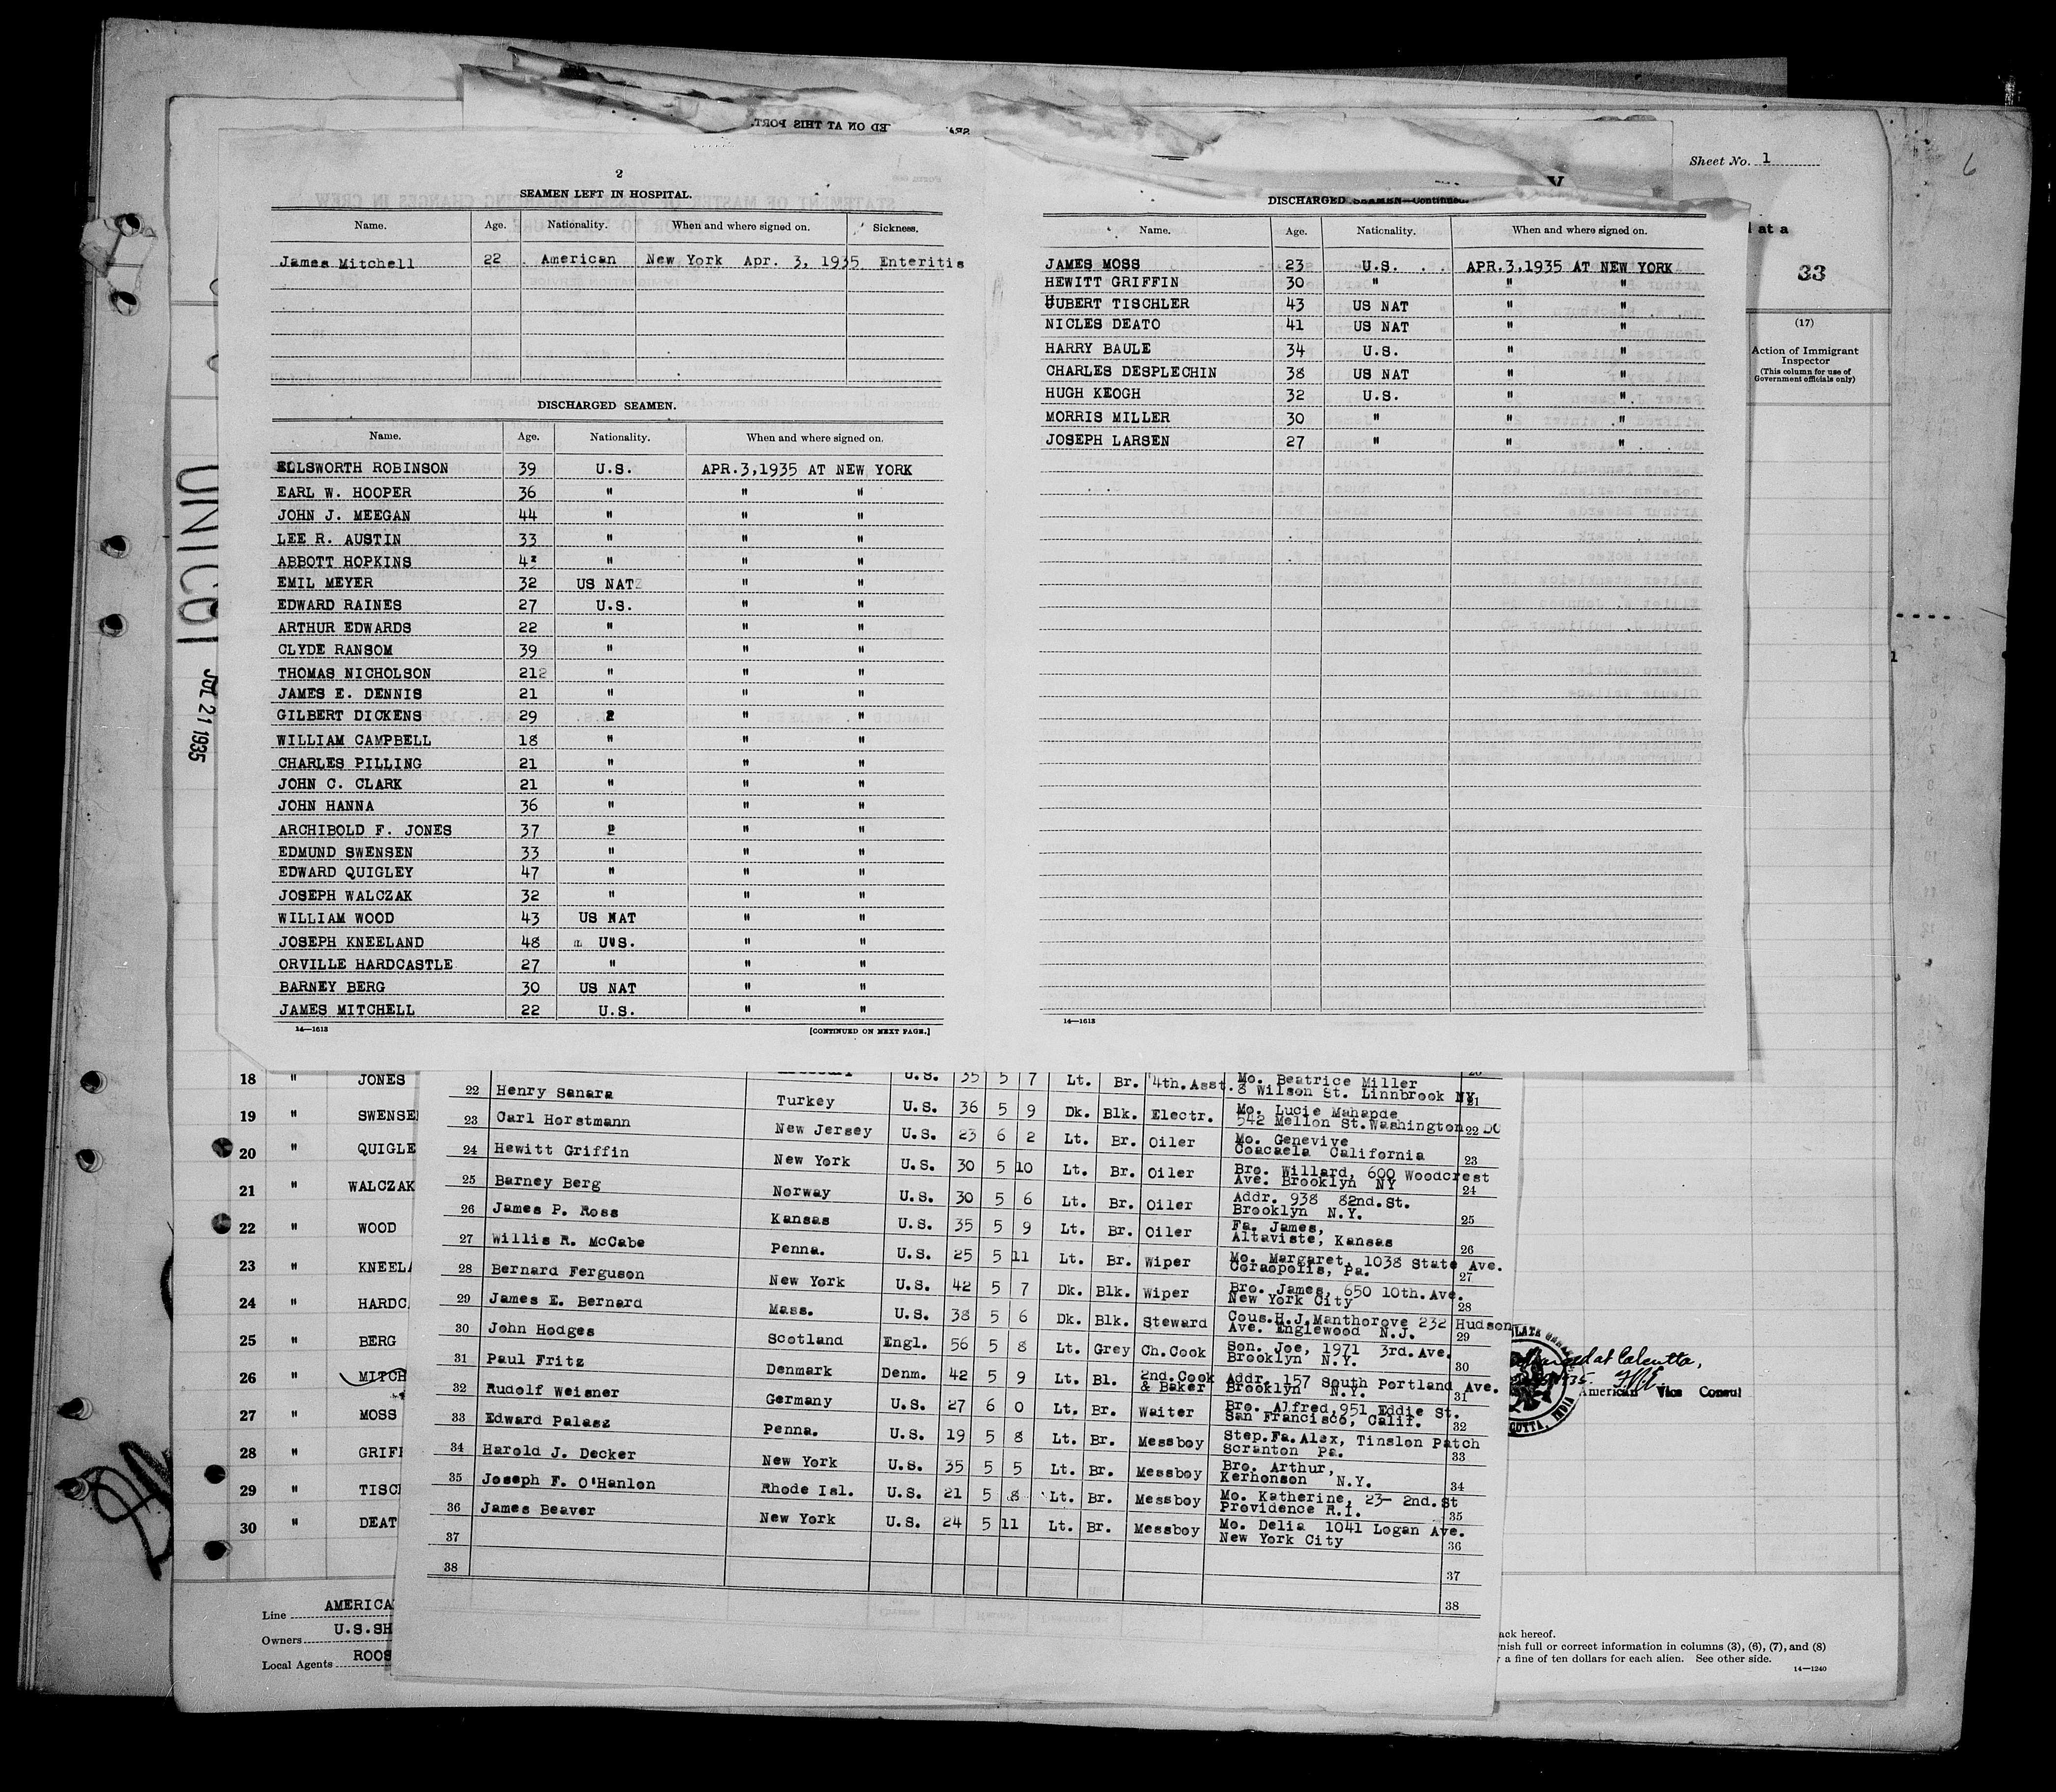 Sheet No. 1
6
2
SEAMEN LEFT IN HOSPITAL.
Name. Age. Nationality. When and where signed on. Sickness.
James Mitchell 22 American New York Apr. 3, 1935 Enteritis
DISCHARGED SEAMEN.
Name. Age. Nationality. When and where signed on.
ELLSWORTH ROBINSON 39 U.S. APR.3,1935 AT NEW YORK
EARL W. HOOPER 36 " " "
JOHN J. MEEGAN 44 " " "
LEE R. AUSTIN 33 " " "
ABBOTT HOPKINS " " "
EMIL MEYER 32 US NAT " "
EDWARD RAINES 27 U.S. " "
ARTHUR EDWARDS 22 " " "
CLYDE RANSOM 39 " " "
THOMAS NICHOLSON 212 " " "
JAMES E. DENNIS 21 " " "
GILBERT DICKENS 29 " " "
WILLIAM CAMPBELL 18 " " "
CHARLES PILLING 21 " " "
JOHN C. CLARK 21 " " "
JOHN HANNA 36 " " "
ARCHIBOLD F. JONES 37 " " "
EDMUND SWENSEN 33 " " "
EDWARD QUIGLEY 47 " " "
JOSEPH WALCZAK 32 " " "
WILLIAM WOOD 43 US NAT " "
JOSEPH KNEELAND 48 U.S. " "
ORVILLE HARDCASTLE 27 " " "
BARNEY BERG 30 US NAT " "
JAMES MITCHELL 22 U.S. " "
14—1613 [CONTINUED ON NEXT PAGE.]
DISCHARGED SEAMEN—Continued.
Name. Age. Nationality. When and where signed on.
JAMES MOSS 23 U.S. APR.3,1935 AT NEW YORK
HEWITT GRIFFIN 30 " " "
HUBERT TISCHLER 43 US NAT " "
NICLES DEATO 41 US NAT " "
HARRY BAULE 34 U.S. " "
CHARLES DESPLECHIN 38 US NAT " "
HUGH KEOGH 32 U.S. " "
MORRIS MILLER 30 " " "
JOSEPH LARSEN 27 " " "
14—1613
at a
33
(17)
Action of Immigrant
Inspector
(This column for use of
Government officials only)
UNICOI
JUL 21 1935
18 " JONES
19 " SWENSE
20 " QUIGLE
21 " WALCZAK
22 " WOOD
23 " KNEEL
24 " HARDC
25 " BERG
26 " MITCH
27 " MOSS
28 " GRIFF
29 " TISC
30 " DEAT
Line AMERICA
Owners U.S.SH
Local Agents ROOS
U.S. 35 5 7 Lt. Br. 4th.Asst. Mo. Beatrice Miller
8 Wilson St. Linnbrook NY 21
22 Henry Sanara Turkey U.S. 36 5 9 Dk. Blk. Electr. Mo. Lucie Mahapde
542 Mellon St.Washington DC 22
23 Carl Horstmann New Jersey U.S. 23 6 2 Lt. Br. Oiler Mo. Genevive
Coacaela California 23
24 Hewitt Griffin New York U.S. 30 5 10 Lt. Br. Oiler Bro. Willard, 600 Woodcrest
Ave. Brooklyn NY 24
25 Barney Berg Norway U.S. 30 5 6 Lt. Br. Oiler Addr. 938 82nd.St.
Brooklyn N.Y. 25
26 James P. Ross Kansas U.S. 35 5 9 Lt. Br. Oiler Fa. James,
Altaviste, Kansas 26
27 Willis R. McCabe Penna. U.S. 25 5 11 Lt. Br. Wiper Mo. Margaret, 1038 State Ave.
Coraopolis, Pa. 27
28 Bernard Ferguson New York U.S. 42 5 7 Dk. Blk. Wiper Bro. James, 650 10th.Ave.
New York City 28
29 James E. Bernard Mass. U.S. 38 5 6 Dk. Blk. Steward Cous.H.J.Manthorove 232 Hudson
Ave. Englewood N.J. 29
30 John Hodges Scotland Engl. 56 5 8 Lt. Grey Ch.Cook Son. Joe, 1971 3rd.Ave.
Brooklyn N.Y. 30
31 Paul Fritz Denmark Denm. 42 5 9 Lt. Bl. 2nd.Cook & Baker Addr. 157 South Portland Ave.
Brooklyn N.Y. 31
32 Rudolf Weisner Germany U.S. 27 6 0 Lt. Br. Waiter Bro. Alfred,951 Eddie St.
San Francisco, Calif. 32
33 Edward Palasz Penna. U.S. 19 5 8 Lt. Br. Messboy Step.Fa.Alex, Tinslon Patch
Scranton Pa. 33
34 Harold J. Decker New York U.S. 35 5 5 Lt. Br. Messboy Bro. Arthur,
Kerhonson N.Y. 34
35 Joseph F. O'Hanlon Rhode Isl. U.S. 21 5 8 Lt. Br. Messboy Mo. Katherine, 23- 2nd.St
Providence R.I. 35
36 James Beaver New York U.S. 24 5 11 Lt. Br. Messboy Mo. Delia 1041 Logan Ave.
New York City 36
37 37
38 38
at Calcutta,
American Vice Consul
INDIA
ack hereof.
nish full or correct information in columns (3), (6), (7), and (8)
a fine of ten dollars for each alien. See other side.
14—1240